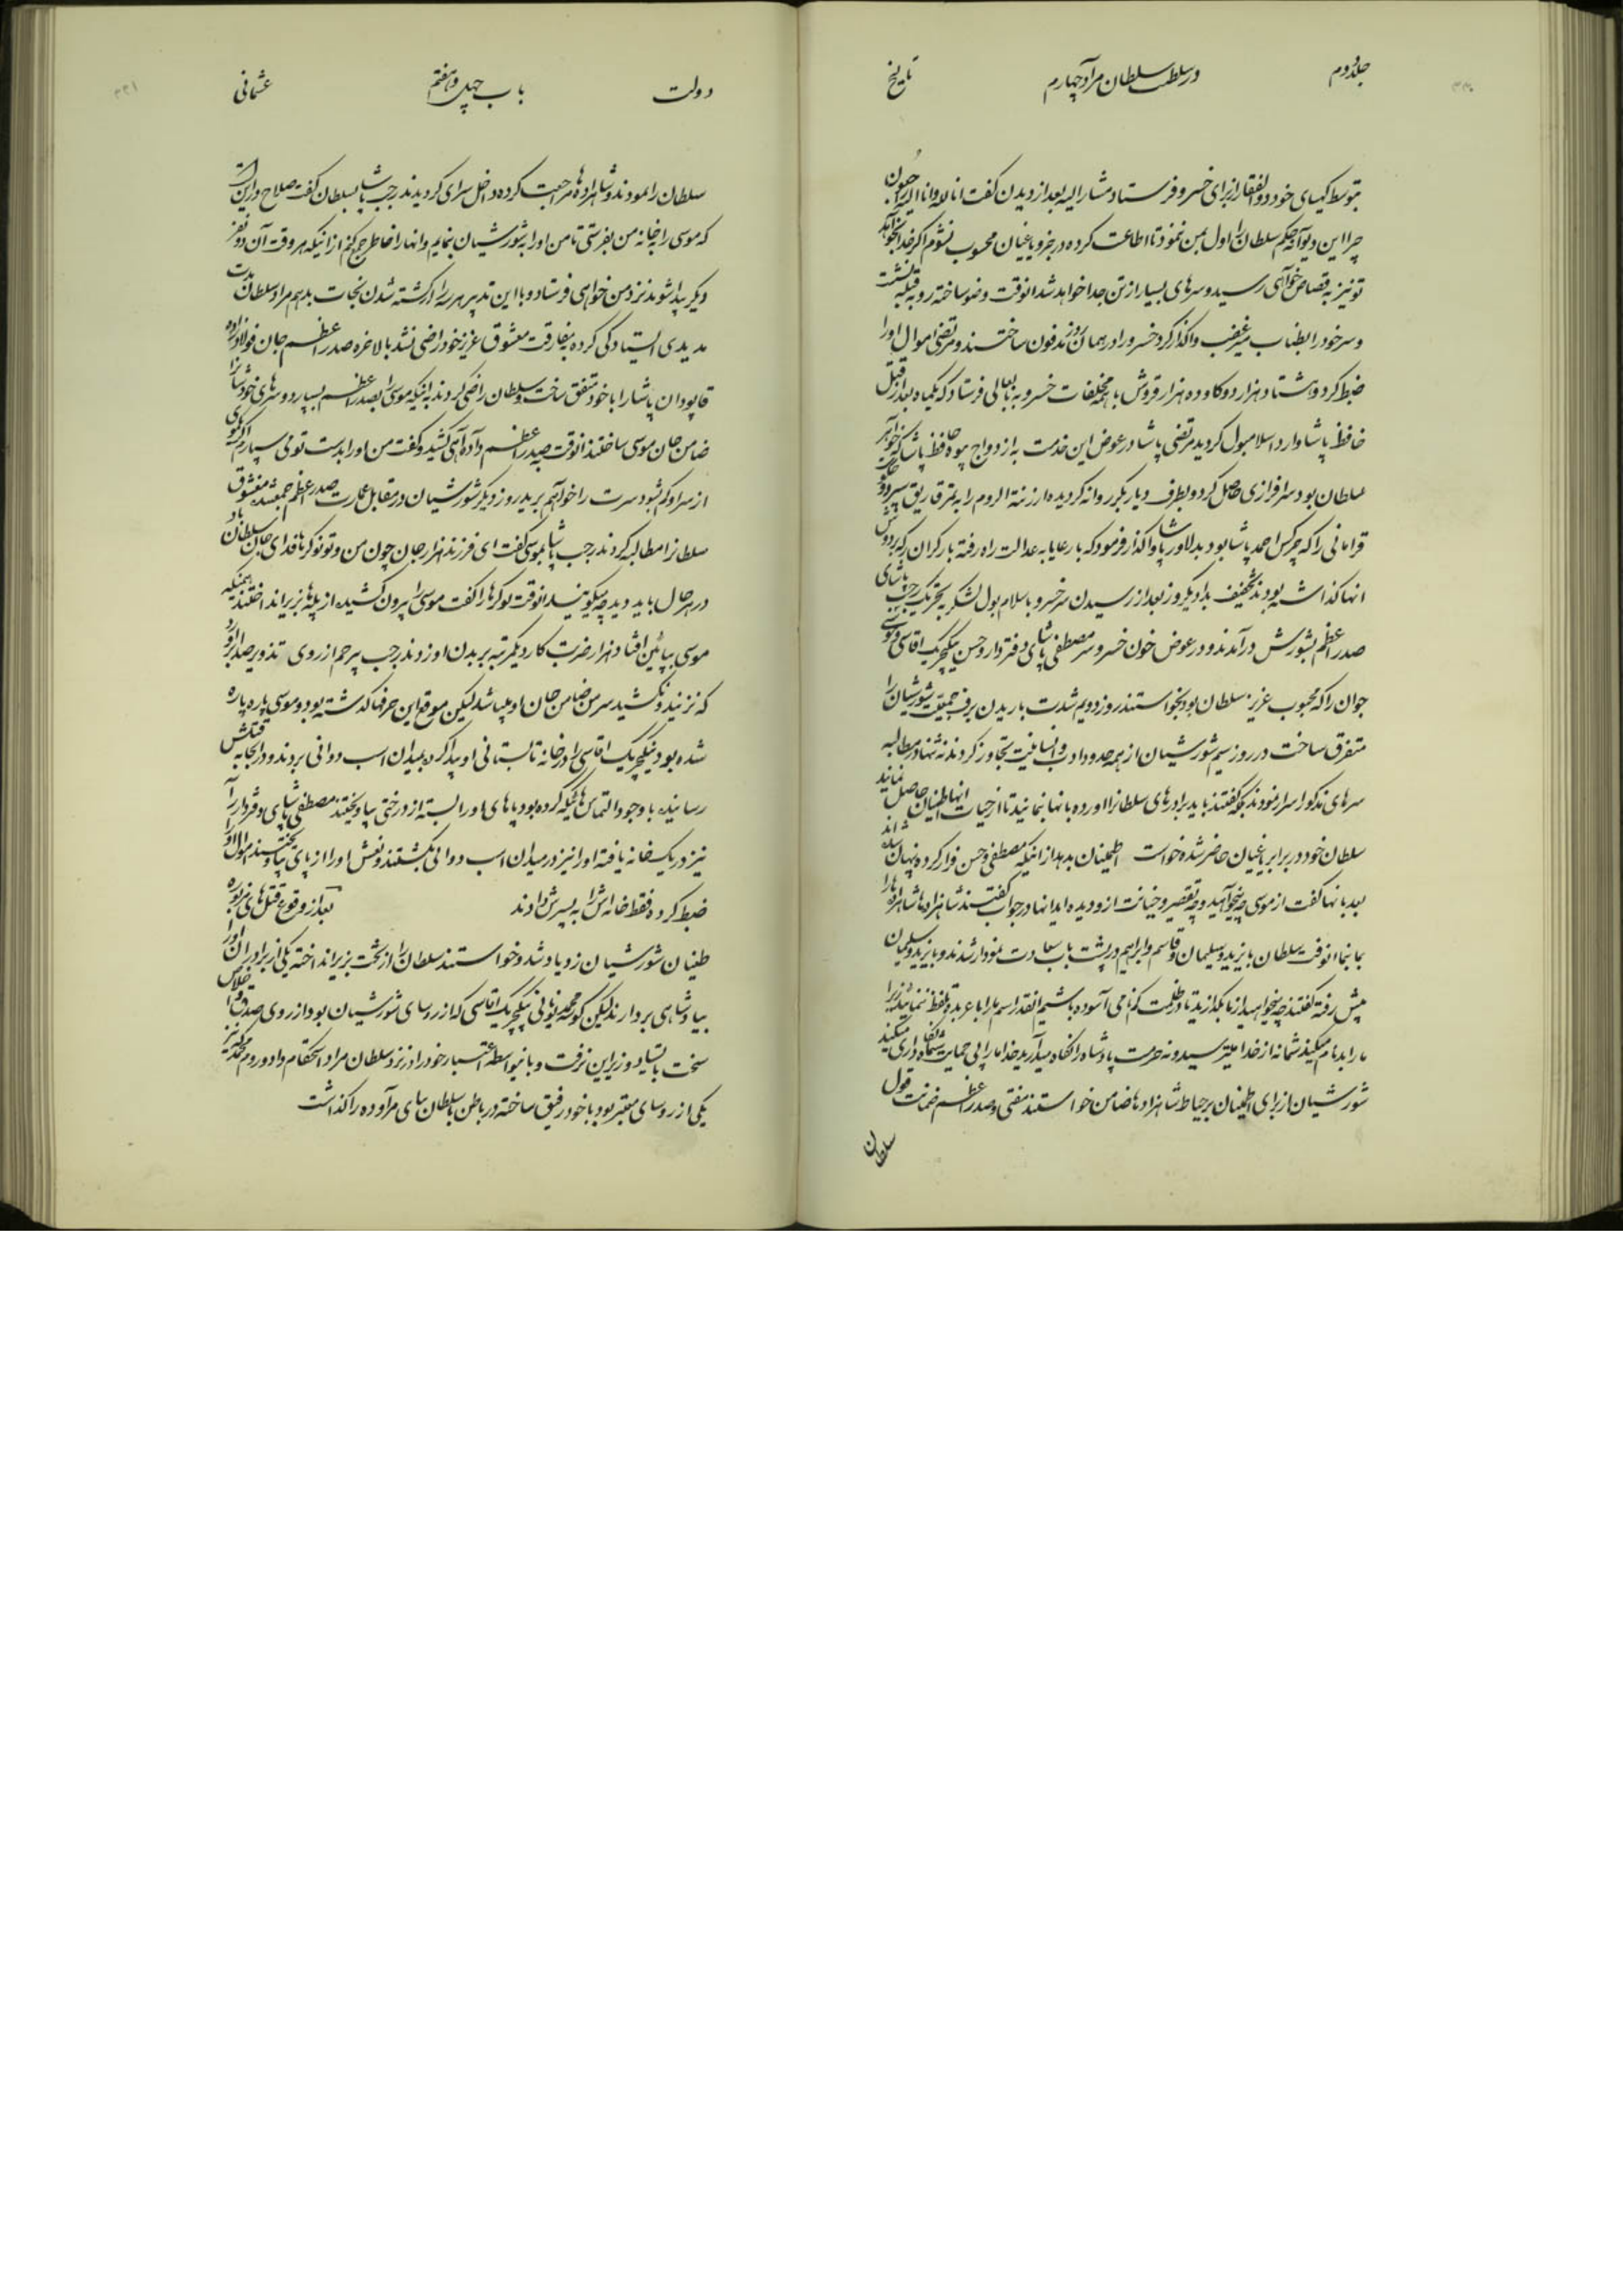 جلد دوم در سلطنت سلطان مراد چهارم تاریخ
بتوسط کیهای خود ذوالفقار از برای خسرو فرستاد مشار الیه بعد از دیدن کفت انا لله وانا الیه راجعون
چرا این دیو آنچه حکم سلطان را اول بمن ننمود تا اطاعت کرده در جزو یاغیان محسوب نشوم اکر خدا بخواهد
تو نیز به قصاص خواهی رسید و سرهای بسیار از تن جدا خواهد شد انوقت وضو ساخته رو به قبله نشست
و سر خود را بطناب میر غضب واکذار کرد خسرو را در همان روز مدفون ساختند و مرتضی اموال او را
ضبط کرد و هشتاد هزار دوکا و ده هزار قروش با همه مخلفات خسرو به بابعالی فرستاد که یکماه بعد از قتل
حافظ پاشا وارد اسلامبول کردید مرتضی پاشا در عوض این خدمت به ازدواج بیوه حافظ پاشا که خواهر
سلطان بود سرافرازی حاصل کرد و بطرف دیار بکر روانه کردیده ارزنة الروم را به قریق سپرد و حکومت
قرامانی را که چرکس احمد پاشا بود بدلاور پاشا واکذار فرمود که با رعایا به عدالت راه رفته بار کران که بر دوش
انها کذاشته بودند تخفیف بداد یکروز بعد از رسیدن سر خسرو باسلامبول لشکر بتحریک رجب پاشای
صدر اعظم بشورش در آمدند و در عوض خون خسرو سر مصطفی پاشای دفتردار و حسن ینکچریک اقاسی و موسی
جوان را که محبوب عزیز سلطان بود بخواستند روز دویم شدت باریدن برف جمعیت شورشیان را
متفرق ساخت در روز سیم شورشیان از همه حدود ادب و انسانیت تجاوز کردند نه تنها در مطالبه
سرهای مذکور اسرار نمودند بلکه کفتند باید برادرهای سلطانرا اورده بانها بنمایند تا از حیات انها اطمینان حاصل نمایند
سلطان خود در برابر یاغیان حاضر شده خواست اطمینان بدهد از اینکه مصطفی و حسن فرار کرده و پنهان شده اند
بعد بانها کفت از موسی چه میخواهید و چه تقصیر و خیانت از او دیده اید انها در جواب کفتند شاهزاده ها شاهزاده ها را
بما بنما انوقت سلطان بایزید و سلیمان و قاسم و ابراهیم در پشت باب سعادت نمودار شدند و بایزید و سلیمان
پیش رفته کفتند چه میخواهید از ما بکذارید تا در ظلمت کمنامی آسوده باشیم انقدر اسم ما را با عربده تلفظ ننمائید زیرا
ما را بدنام میکنید شما نه از خدا میترسید و نه حرمت پادشاه را نکاه میدارید خدا ما را بی حمایت شما نکاهداری میکند
شورشیان از برای اطمینان بر حیات شاهزاده ها ضامن خواستند مفتی و صدر اعظم ضمانت قول
سلطان
دولت باب چهل و هفتم عثمانی
سلطان را نمودند و شاهزاده ها مراجعت کرده داخل سرای کردیدند رجب پاشا بسلطان کفت صلاح در این است
که موسی را به خانه من بفرستی تا من او را به شورشیان بنمایم و انها را خاطر جمع کنم از اینکه هر وقت آن دو نفر
دیکر پیدا شوند نزد من خواهی فرستاد و با این تدبیر هر سه را از کشته شدن نجات بدهم مراد سلطان مدت
مدیدی ایستادکی کرده بمفارقت معشوق عزیز خود راضی نشد بالاخره صدر اعظم جان فولاد زاده
قاپودان پاشا را با خود متفق ساخت و سلطان را راضی کردند به اینکه موسی را بصدر اعظم بسپارد و سرهای خودشان را
ضامن جان موسی ساختند انوقت به صدر اعظم داده آهی کشید و کفت من او را بدست تو می سپارم اکر موئی
از سر او کم شود سرت را خواهم برید روز دیکر شورشیان در مقابل عمارت صدر اعظم جمع شده معشوق
سلطانرا مطالبه کردند رجب پاشا بموسی کفت ای فرزند هزار جان چون من و تو نوکرها فدای جان سلطان باد
در هر حال باید دید چه میکویند انوقت نوکرها را کفت موسی را بیرون کشیده از پله ها بزیر انداختند همینکه
موسی بپائین افتاد هزار ضربت کارد یکمرتبه بر بدن او زدند رجب بیرحم از روی تذویر صدا برآورد
که نزنید و نکشید سر من ضامن جان او میباشد لیکن موقع این حرفها کذشته بود و موسی پاره پاره
شده بود ینکچریک اقاسی را در خانه تابستانی او پیدا کرده بمیدان اسب دوانی بردند و در انجا به قتلش
رسانیده با وجود التماس هائیکه کرده بود پاهای او را بسته از درختی بیاویختند مصطفی پاشای دفتردار را
نیز در یک خانه یافته او را نیز در میدان اسب دوانی بکشتند و نعش او را از پای بیاویختند اموال او را
ضبط کرده فقط خانه اش را به پسرش دادند بعد از وقوع قتل های مزبوره
طغیان شورشیان زیاد شد و خواستند سلطان را از تخت بزیر انداخته یکی از برادران او را
بپادشاهی بردارند لیکن کوسه محمد یونانی ینکچریک اقاسی که از رؤسای شورشیان بود از روی صدق و اخلاص
سخت بایستاد و زیر این نرفت و بانواسطه اعتبار خود را در نزد سلطان مراد استحکام داد و روم محمد که نیز
یکی از روسای معتبر بود با خود رفیق ساخته در باطن با سلطان بنای مراوده را کذاشت